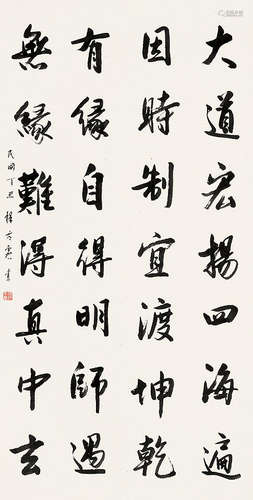 大道宏揚四海遍
因時制宜渡坤乾
有緣自得明師遇
無緣難得真中玄
民國丁丑